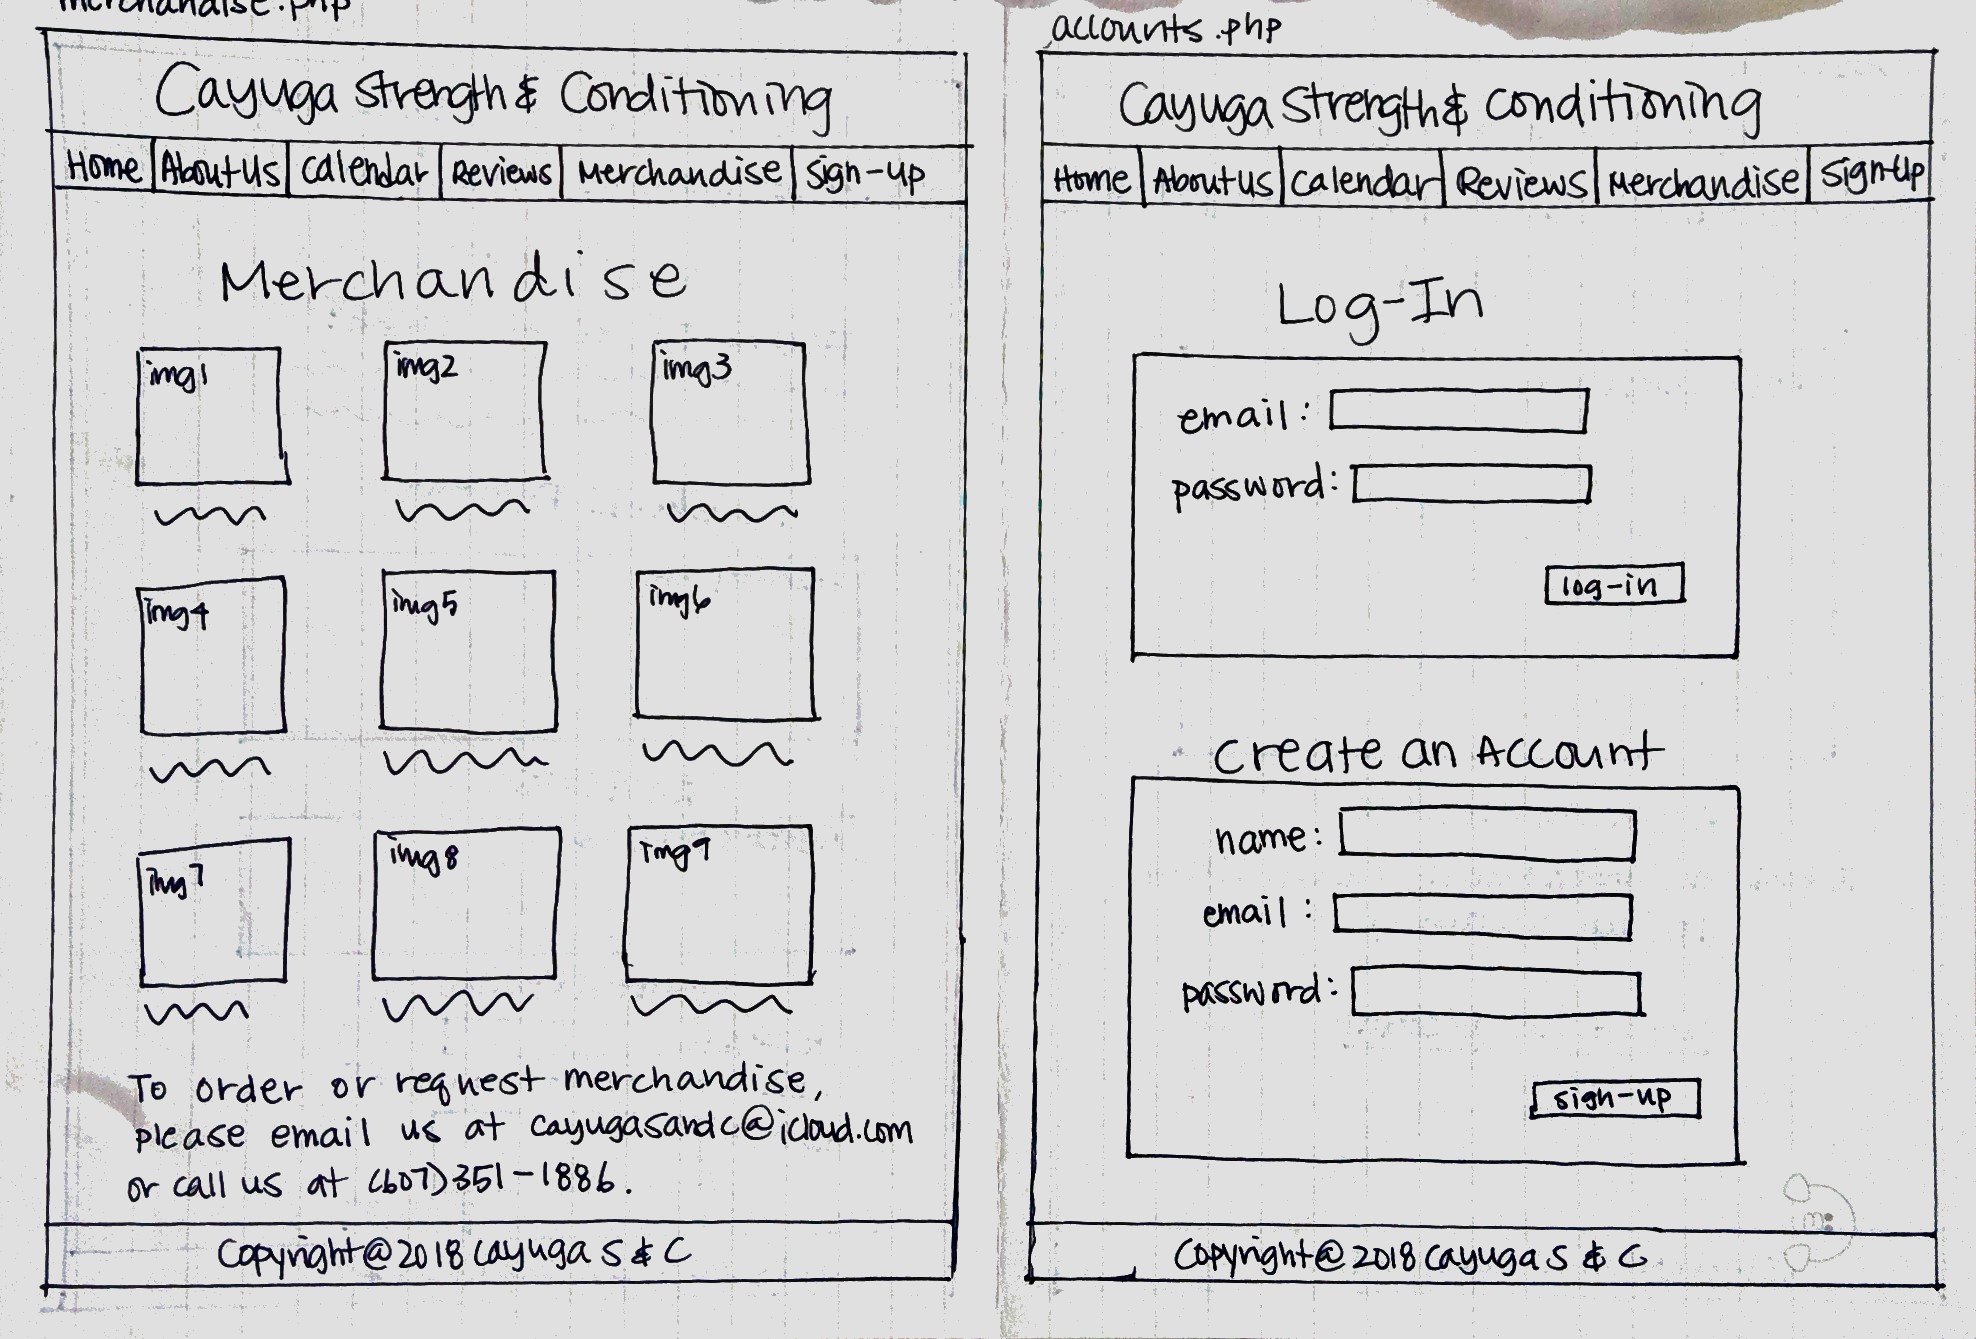 merchandise.php
Cayuga Strength & Conditioning
Home About Us Calendar Reviews Merchandise Sign-up
Merchandise
img1 img2 img3
img4 img5 img6
img7 img8 img9
To order or request merchandise,
please email us at cayugasandc@icloud.com
or call us at (607)351-1886.
Copyright@2018 Cayuga S & C
accounts.php
Cayuga Strength & Conditioning
Home About us Calendar Reviews Merchandise Sign-up
Log-In
email:
password:
log-in
Create an Account
name:
email:
password:
sign-up
Copyright@2018 Cayuga S & C